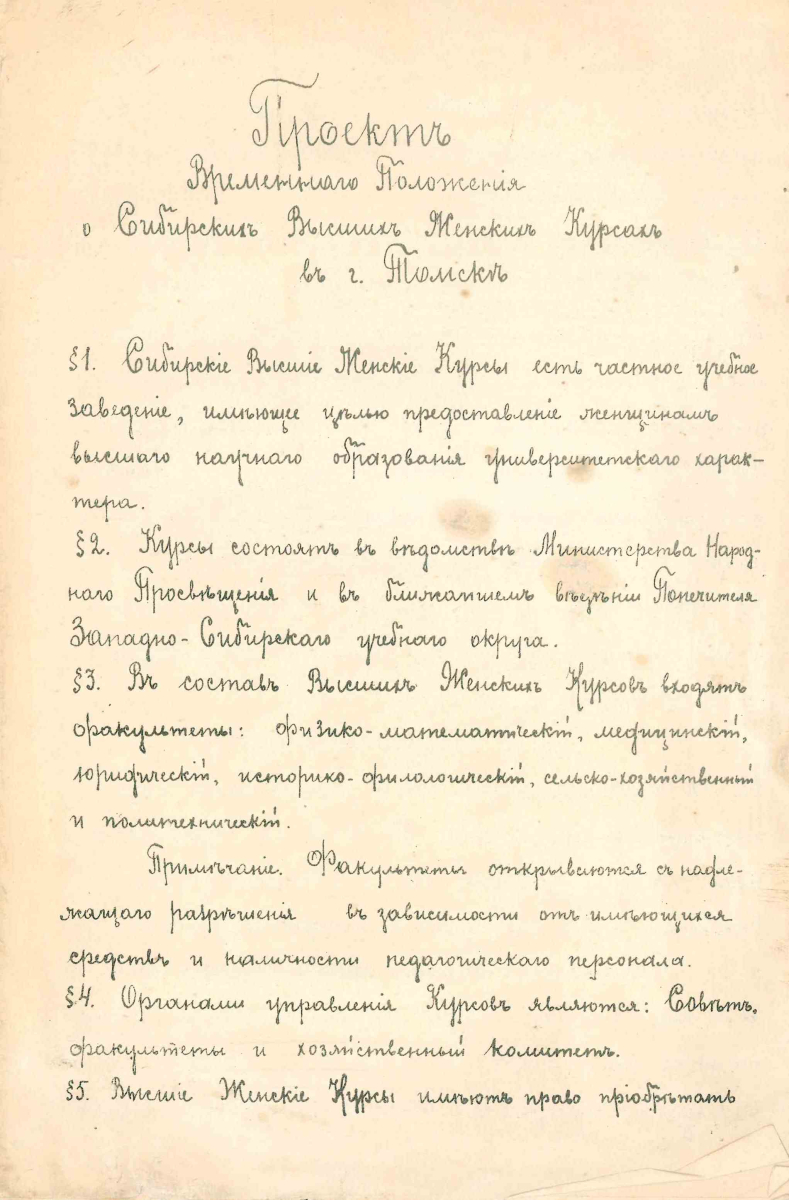 Проектъ
Временнаго Положенія
о Сибирскихъ Высшихъ Женскихъ Курсахъ
въ г. Томскѣ
§1. Сибирскіе Высшіе Женскіе Курсы есть частное учебное
заведеніе, имѣющее цѣлью предоставленіе женщинамъ
высшаго научнаго образованія университетскаго харак-
тера.
§2. Курсы состоятъ въ вѣдомствѣ Министерства Народ-
наго Просвѣщенія и въ ближайшемъ вѣдѣніи Попечителя
Западно-Сибирскаго учебнаго округа.
§3. Въ составъ Высшихъ Женскихъ Курсовъ входятъ
факультеты: физико-математическій, медицинскій,
юридическій, историко-филологическій, сельско-хозяйственный
и политехническій.
Примѣчаніе. Факультеты открываются съ надле-
жащаго разрѣшенія въ зависимости отъ имѣющихся
средствъ и наличности педагогическаго персонала.
§4. Органами управленія Курсовъ являются: Совѣтъ,
факультеты и хозяйственный комитетъ.
§5. Высшіе Женскіе Курсы имѣютъ право пріобрѣтать